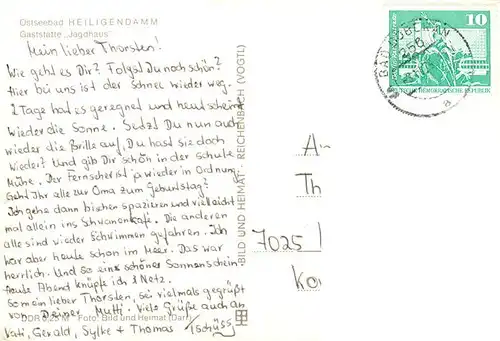 Ostseebad HEILIGENDAMM
Gaststätte „Jagdhaus"
Mein lieber Thorsten!
Wie geht es Dir? Folgst Du noch schön?
Hier bei uns ist der Schnee wieder weg.
2 Tage hat es geregnet und heut scheint
wieder die Sonne. Setzt Du nun auch
wieder die Brille auf, Du hast sie doch
wieder? Und gib Dir schön in der Schule
Mühe. Der Fernseher ist ja wieder in Ordnung.
Geht Ihr alle zur Oma zum Geburtstag?
Ich gehe dann bischen spazieren und vielleicht
mal allein ins Schwanenkafe. Die anderen
alle sind wieder Schwimmen gefahren. Ich
war aber heute schon im Meer. Das war
herrlich. Und so ein schöner Sonnenschein.
Heute Abend knüpfe ich 1 Netz.
So mein lieber Thorsten, sei vielmals gegrüßt
von Deiner Mutti. Viele Grüße auch an
Vati, Gerald, Sylke + Thomas Tschüss
DDR 0,25 M Foto: Bild und Heimat (Darr)
BILD UND HEIMAT · REICHENBACH (VOGTL)
10
DEUTSCHE DEMOKRATISCHE REPUBLIK
BAD DOBERAN
a
An
Th
7025